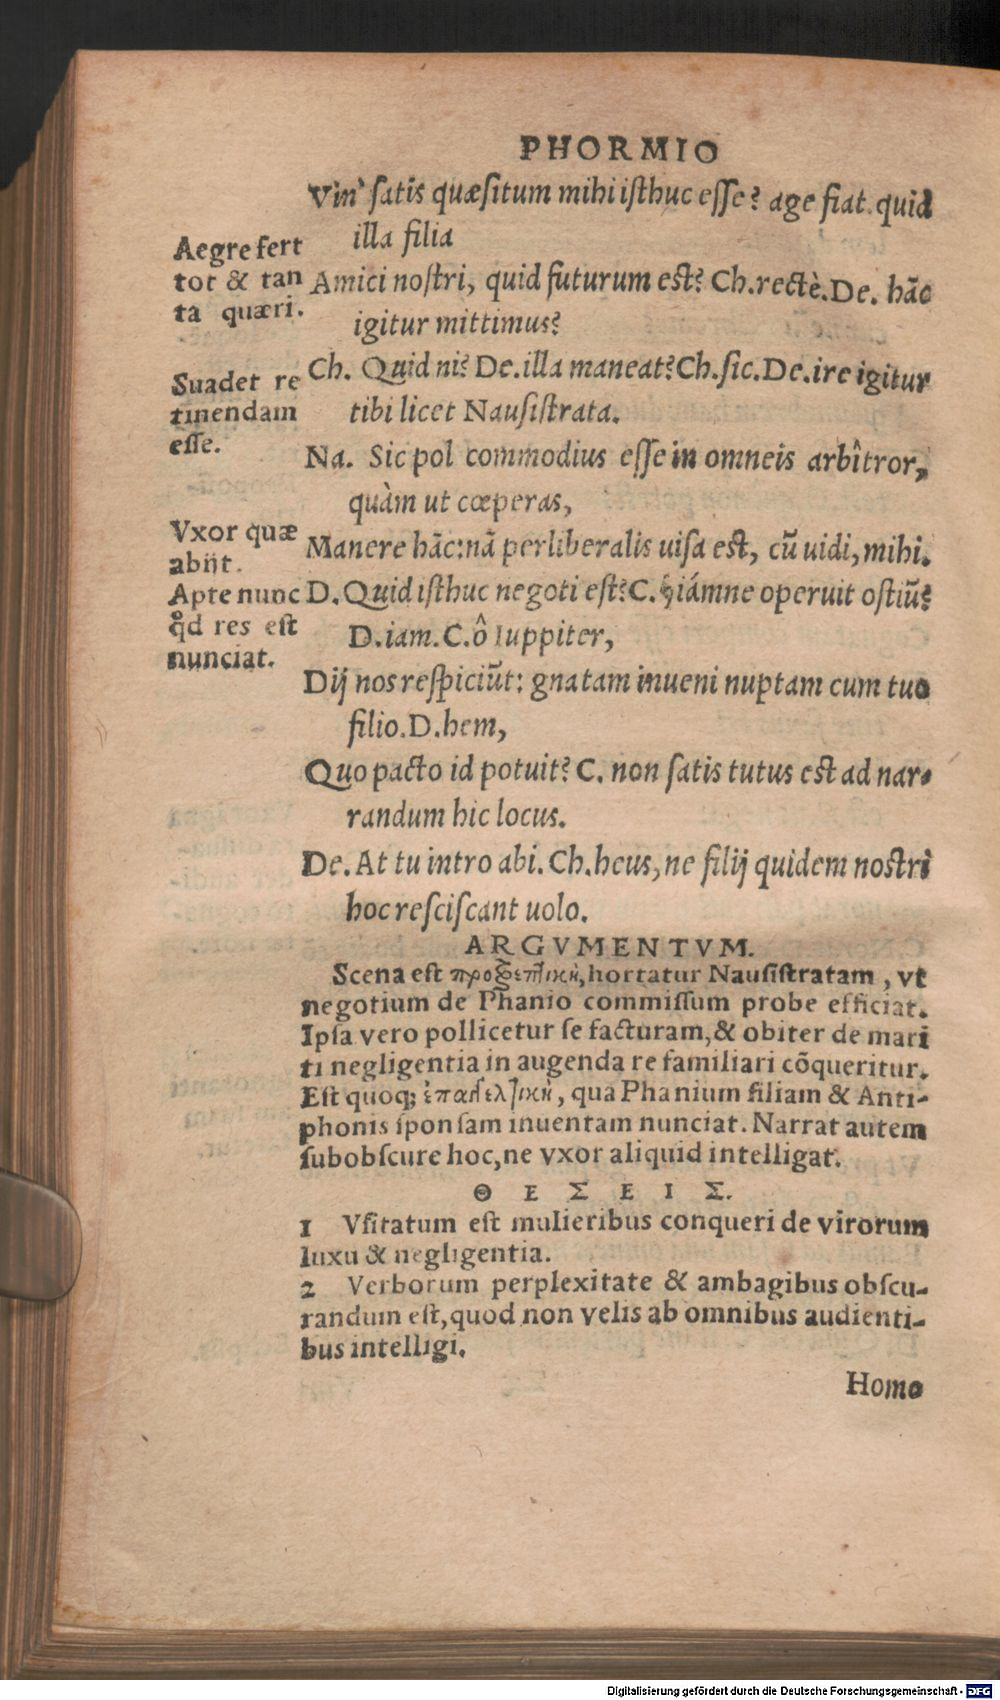 PHORMIO
Vin' satis quæsitum mihi isthuc esse? age fiat. quid
illa filia
Amici nostri, quid futurum est? Ch. rectè. De. hāc
igitur mittimus?
Ch. Quid ni? De. illa maneat? Ch. sic. De. ire igitur
tibi licet Nausistrata.
Na. Sic pol commodius esse in omneis arbîtror,
quàm ut cœperas,
Manere hāc: nā perliberalis uisa est, cū uidi, mihi.
D. Quid isthuc negoti est? C. iámne operuit ostiū?
D. iam. C. ô Iuppiter,
Dij nos respiciūt: gnatam inueni nuptam cum tuo
filio. D. hem,
Quo pacto id potuit? C. non satis tutus est ad nar-
randum hic locus.
De. At tu intro abi. Ch. heus, ne filij quidem nostri
hoc resciscant uolo.
Aegre fert
tot & tan
ta quæri.
Suadet re
tinendam
esse.
Vxor quæ
abijt.
Apte nunc
qd res est
nunciat.
ARGVMENTVM.
Scena est hortatur Nausistratam, vt
negotium de Phanio commissum probe efficiat.
Ipsa vero pollicetur se facturam, & obiter de mari
ti negligentia in augenda re familiari cōqueritur.
Est quoq; qua Phanium filiam & Anti-
phonis sponsam inuentam nunciat. Narrat autem
subobscure hoc, ne vxor aliquid intelligat.
ΘΕΣΕΙΣ.
1 Vsitatum est mulieribus conqueri de virorum
luxu & negligentia.
2 Verborum perplexitate & ambagibus obscu-
randum est, quod non velis ab omnibus audienti-
bus intelligi.
Homo
Digitalisierung gefördert durch die Deutsche Forschungsgemeinschaft - DFG